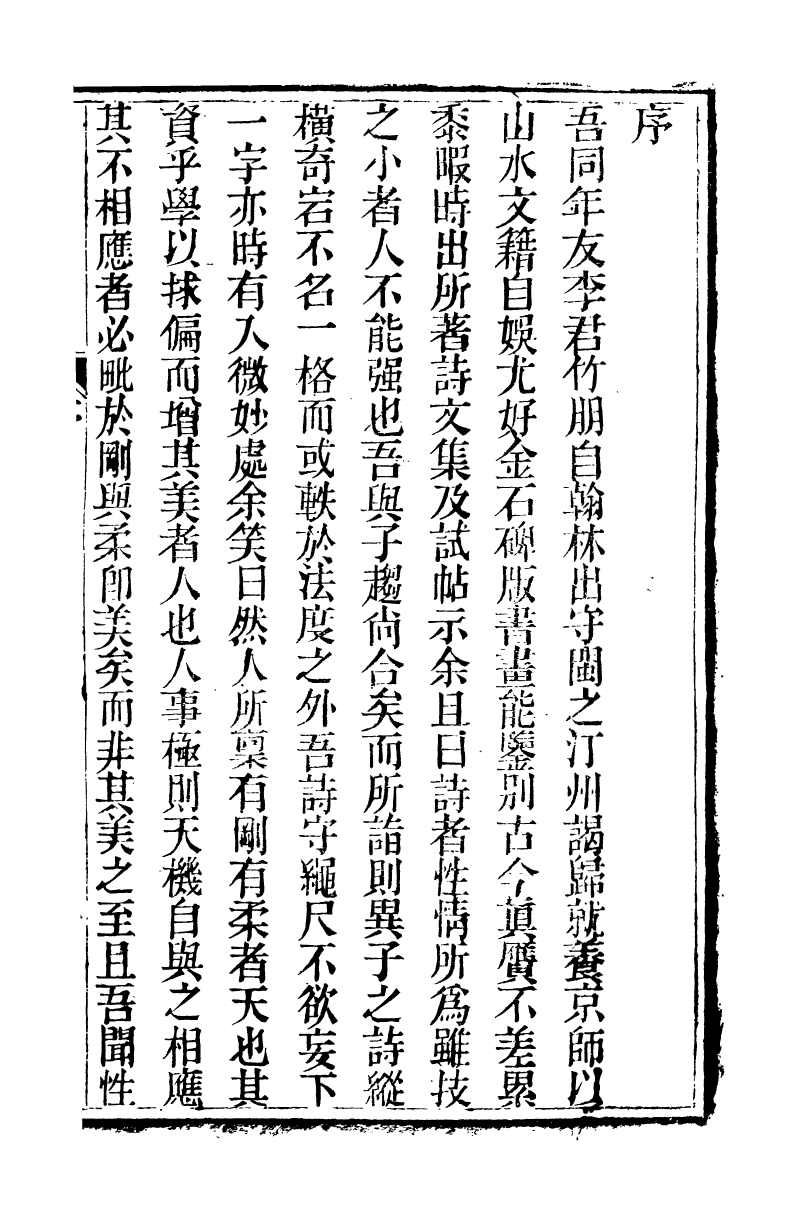 序
吾同年友李君竹朋自翰林出守閩之汀州謁歸就養京師以
山水文籍自娛尤好金石碑版書畫能鑒別古今眞贋不差累
黍暇時出所著詩文集及試帖示余且曰詩者性情所爲雖技
之小者人不能强也吾與子趨尙合矣而所詣則異子之詩縱
橫奇宕不名一格而或軼於法度之外吾詩守繩尺不欲妄下
一字亦時有入微妙處余笑曰然人所稟有剛有柔者天也其
資乎學以捄偏而增其美者人也人事極則天機自與之相應
其不相應者必毗於剛與柔卽美矣而非其美之至且吾聞性